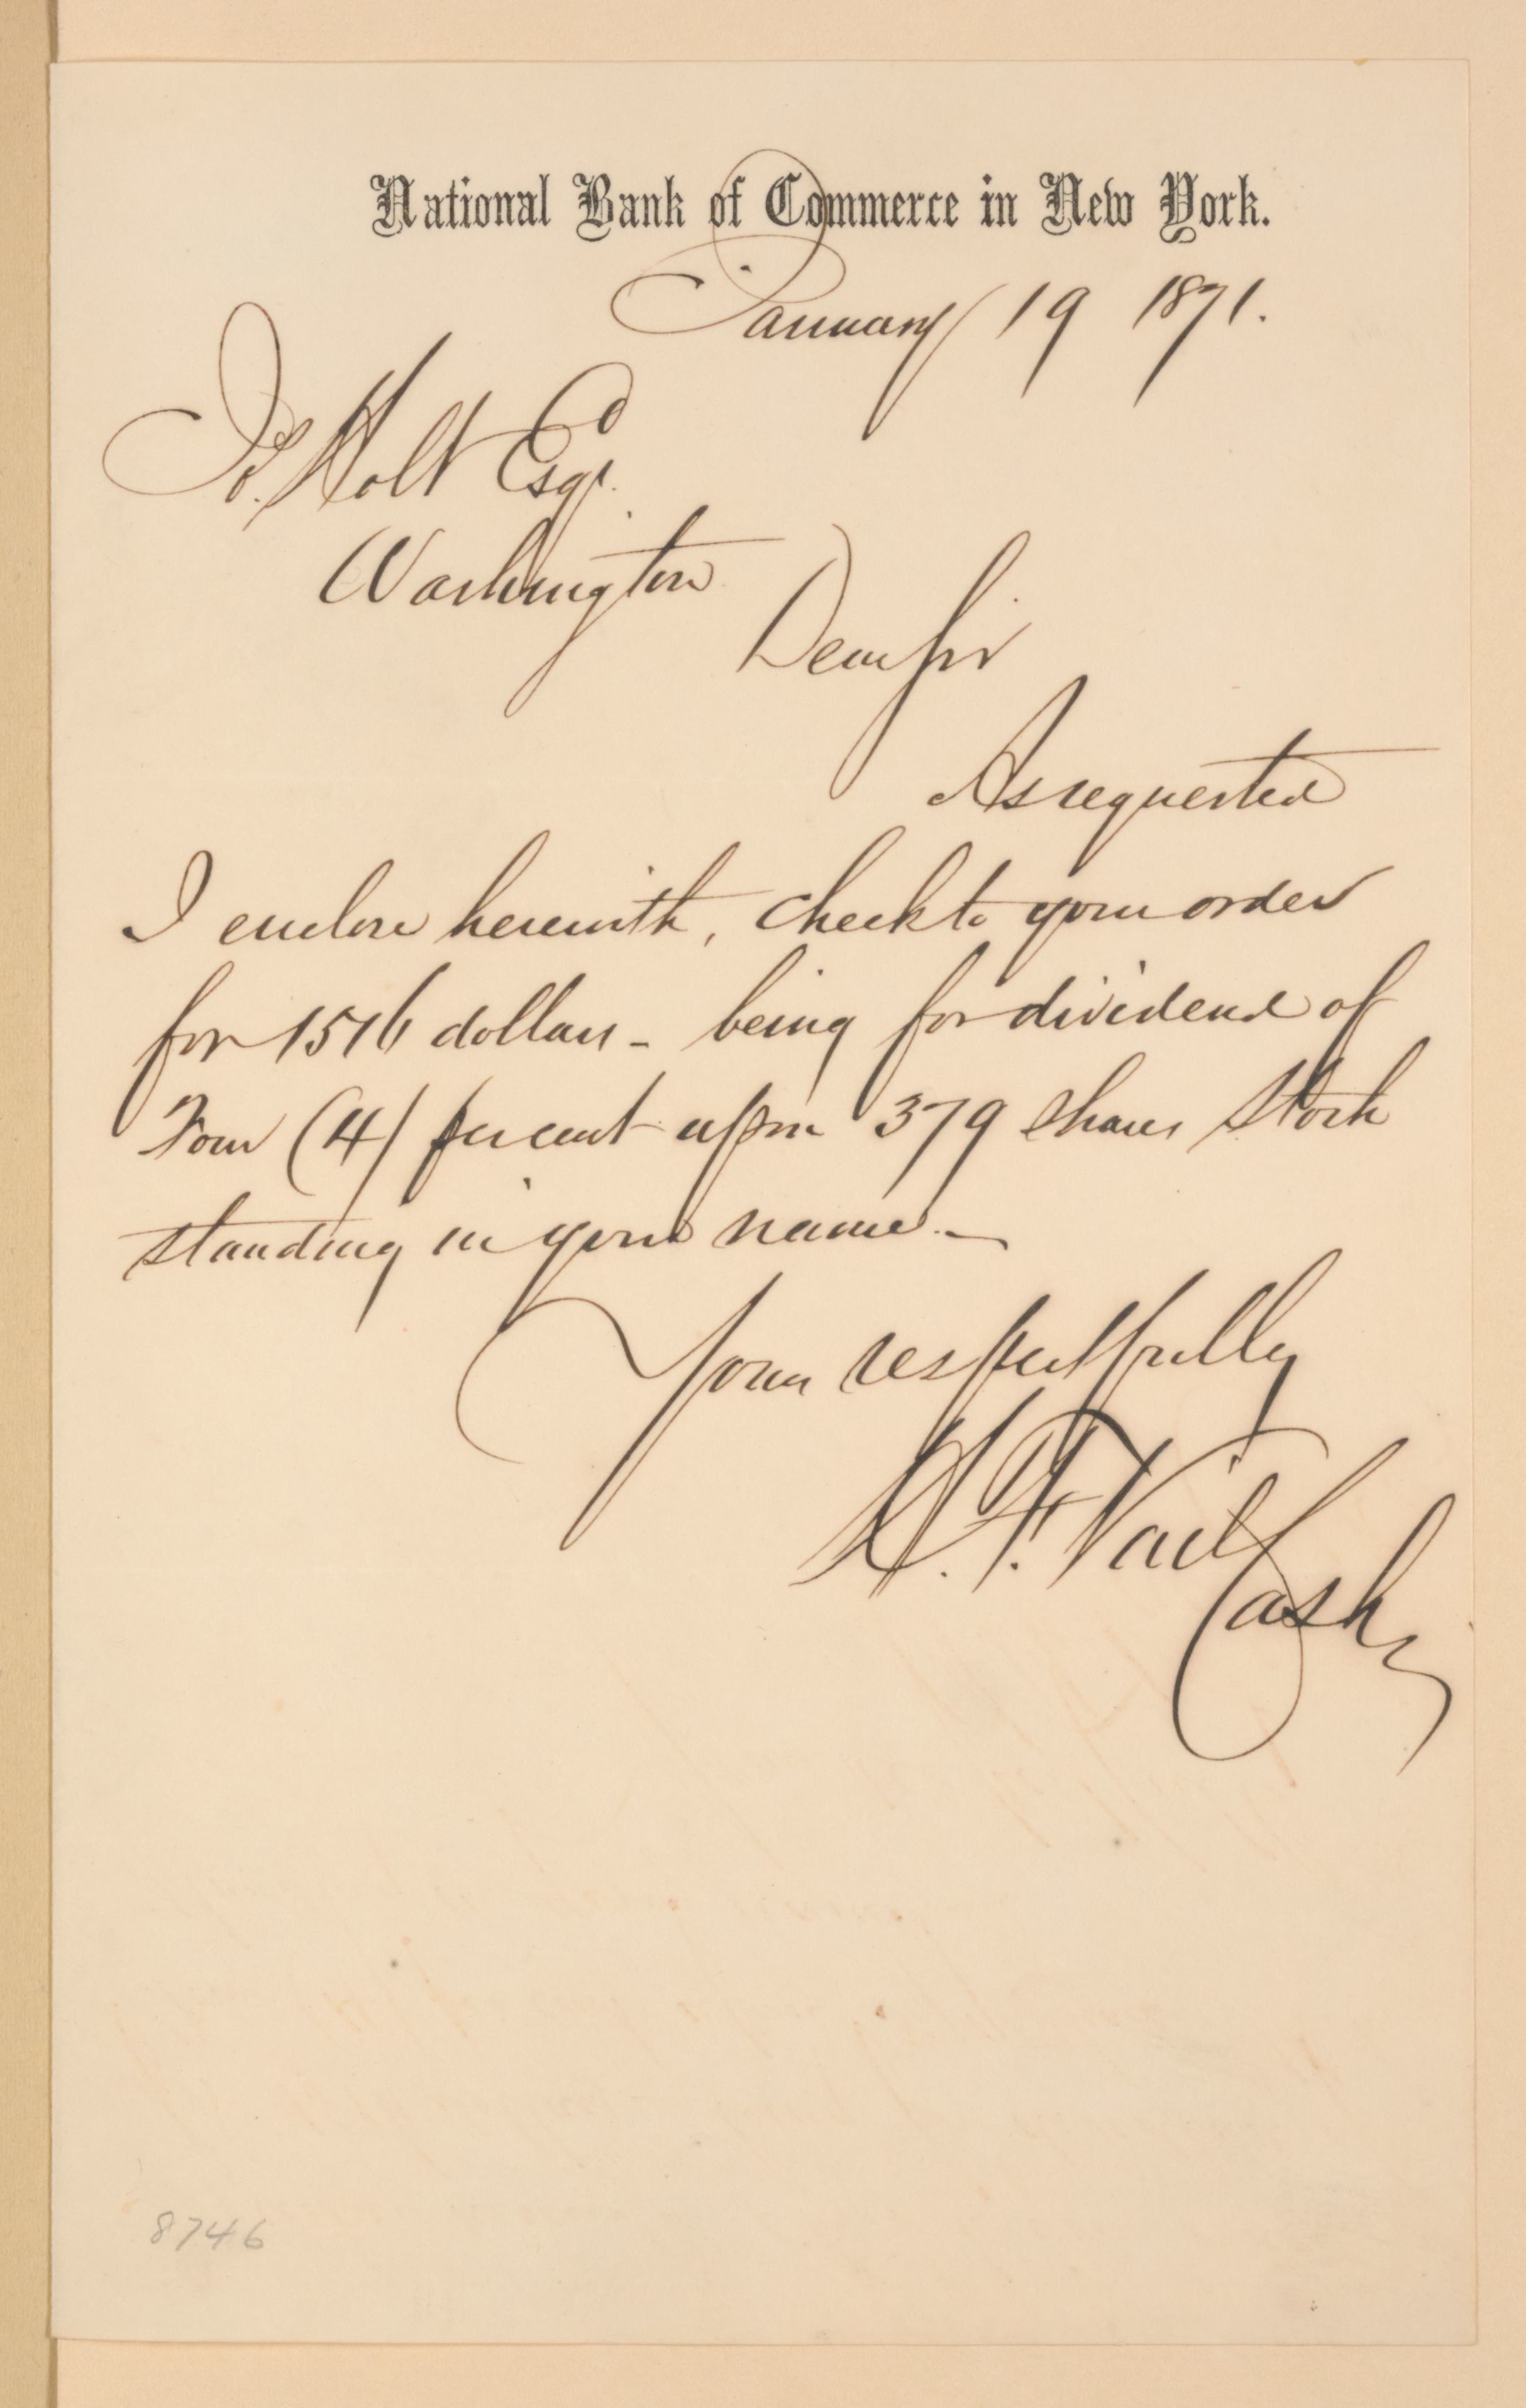 National Bank of Commerce in New York.
January 19 1871.
Jos. Holt Esqr.
Washington
Dear Sir
As requested
I enclose herewith, check to your order
for 1516 dollars - being for dividend of
Four (4) per cent upon 379 shares Stock
standing in your name. -
Yours respectfully
H. F. Vail
Cashr
8746